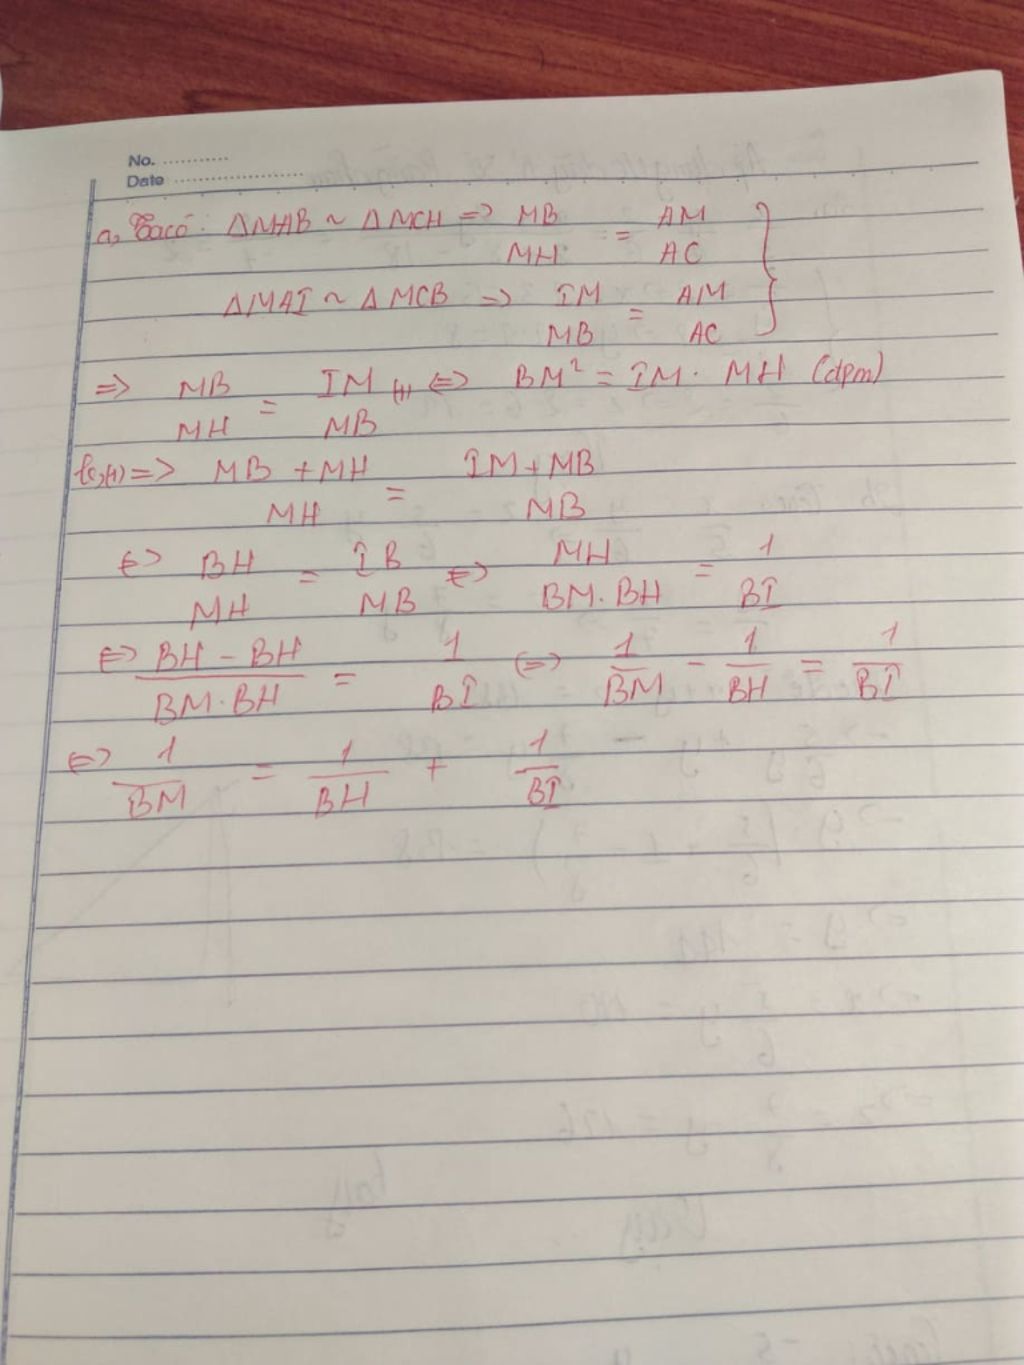 No. ...........
Date .....................
a, Taco: ΔMAB ~ ΔMCH => MB/MH = AM/AC
ΔMAI ~ ΔMCB => IM/MB = AM/AC
=> MB/MH = IM/MB (1) <=> BM² = IM. MH (dpm)
b, (1) => MB + MH/MH = IM + MB/MB
<=> BH/MH = IB/MB <=> MH/BM.BH = 1/BI
<=> BH - BH/BM.BH = 1/BI <=> 1/BM - 1/BH = 1/BI
<=> 1/BM = 1/BH + 1/BI